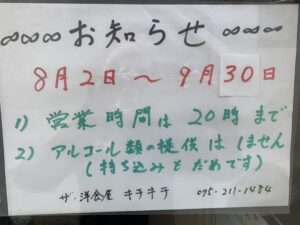 ∞∞∞ お知らせ ∞∞∞
8月2日 〜 9月30日
1) 営業時間は 20時まで
2) アルコール類の提供は しません
(持ち込みもだめです)
ザ・洋食屋 キチキチ 075-211-1484